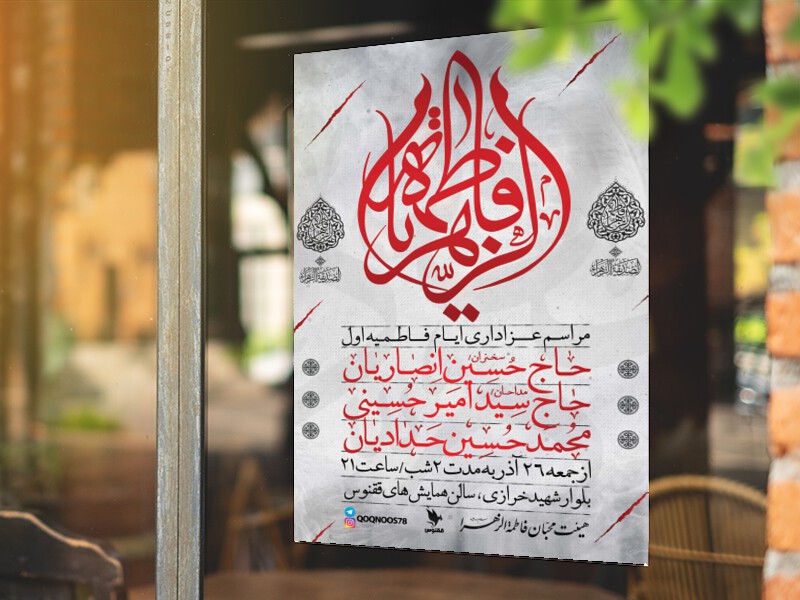 فاطمة الزهراء
الصدیقة الزهراء
الصدیقة الزهراء
مراسم عزاداری ایام فاطمیه اول
سخنران/
حاج حسین انصاریان
مداحان/
حاج سید امیر حسینی
محمد حسین حدادیان
از جمعه ۲۶ آذر به مدت ۲ شب/ساعت ۲۱
بلوار شهید خرازی، سالن همایش های ققنوس
هیئت محبان فاطمة الزهرا
ققنوس
QOQNOOS78